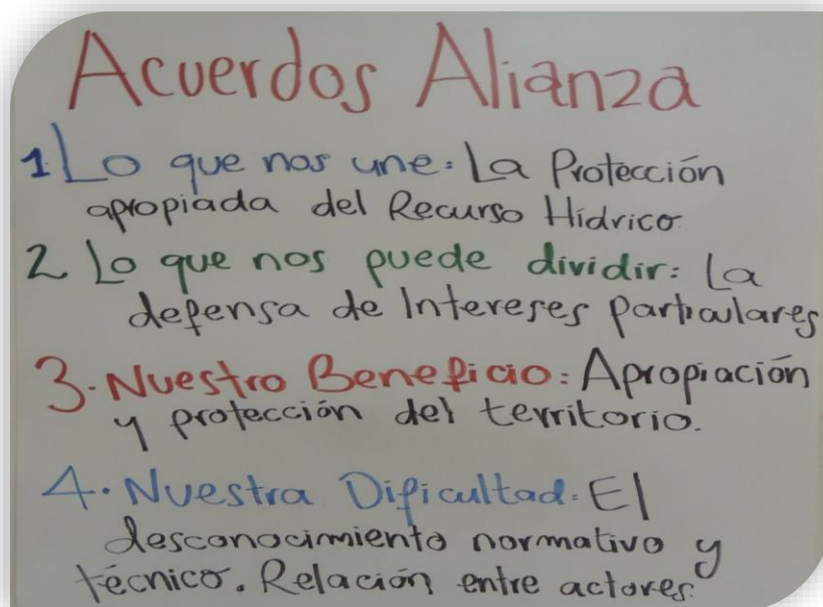 Acuerdos Alianza
1. Lo que nos une: La Protección
apropiada del Recurso Hídrico
2 Lo que nos puede dividir: La
defensa de Intereses particulares
3. Nuestro Beneficio: Apropiación
y protección del territorio.
4. Nuestra Dificultad: El
desconocimiento normativo y
técnico. Relación entre actores.